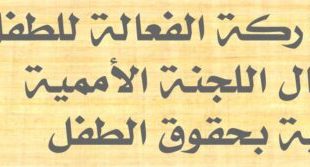 ركة الفعالة للطفل
ال اللجنة الأممية
ية بحقوق الطفل